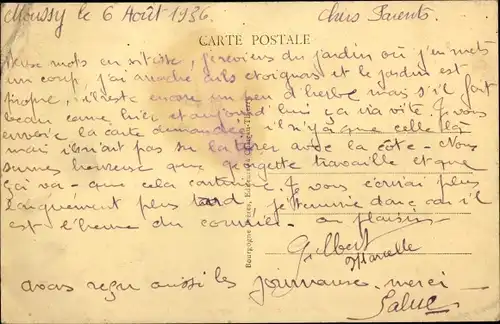 Moussy le 6 Août 1936. Chers Parents.
CARTE POSTALE
Deux mots en vitesse, je reviens du jardin où j'en mets
un coup, j'ai arraché ails et oignons et le jardin est
propre, il reste encore un peu d'herbe mais s'il fait
beau come hier et aujourd'hui ça ira vite. Je vous
envoie la carte demandée il n'y a que celle là
mais il n'ont pas su la tirer avec la côte - Nous
sommes heureuse que Georgette travaille et que
ça va - que cela continue. Je vous écrirai plus
longuement plus tard je termine donc car il
est l'heure du courrier - au plaisir -
Gilbert
Marcelle
avons reçu aussi les journaux. merci -
Salue
Bourgogne Frères, Château-Thierry